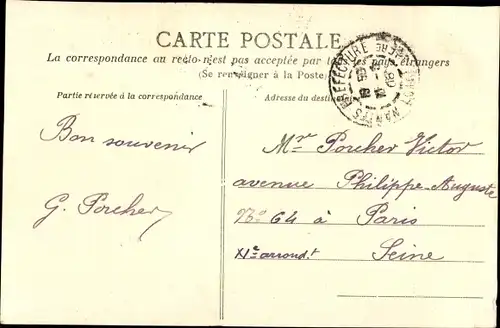 CARTE POSTALE
La correspondance au recto n'est pas acceptée par tous les pays étrangers
(Se renseigner à la Poste)
Partie réservée à la correspondance
Adresse du destinataire
Bon souvenir
G. Porcher
Mr Porcher Victor
avenue Philippe-Auguste
No 64 à Paris
XIe arrondt Seine
NANTES PREFECTURE